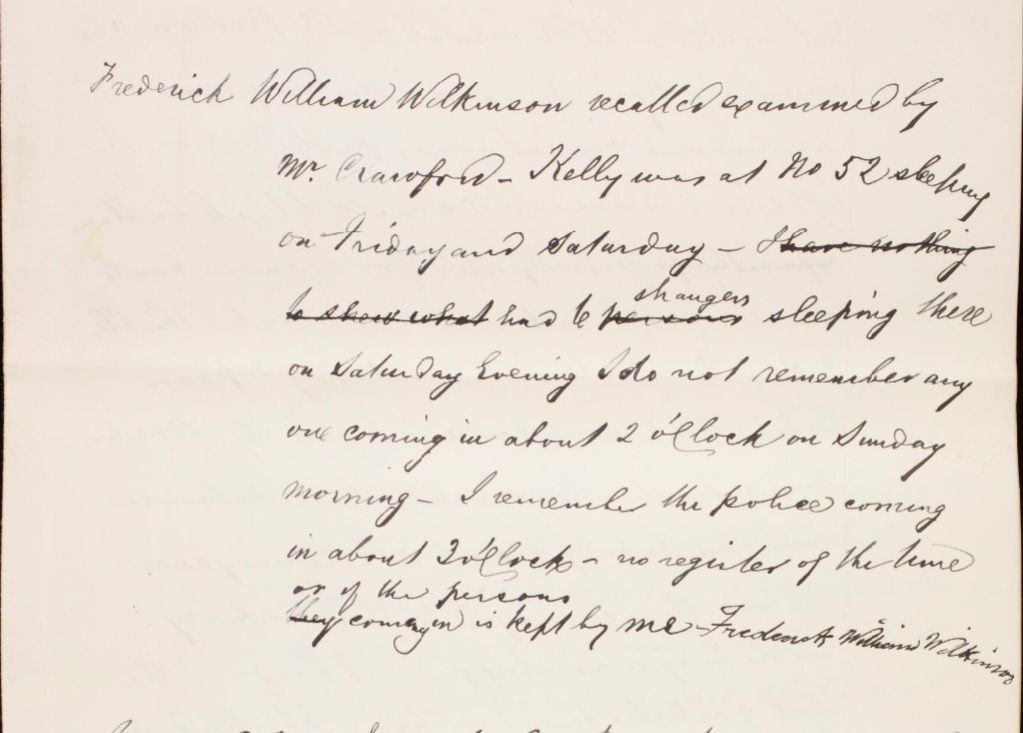 Frederick William Wilkinson recalled examined by
Mr. Crawford – Kelly was at No 52 sleeping
on Friday and Saturday – I have nothing
to shew what had 6 persons strangers sleeping there
on Saturday Evening I do not remember any
one coming in about 2 o'Clock on Sunday
morning – I remember the police coming
in about 3 o'Clock – no register of the time
or of the persons
they coming in is kept by me Frederick William Wilkinson